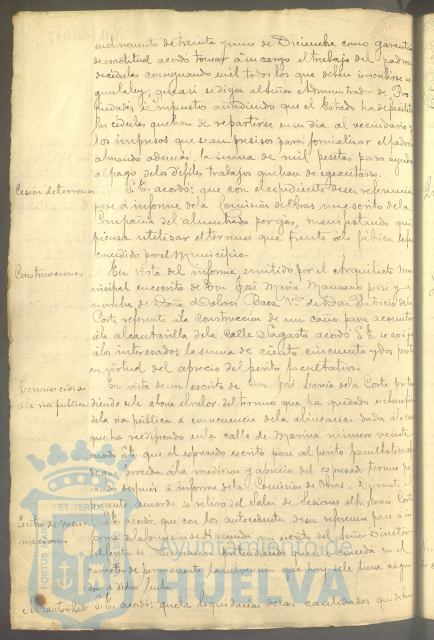 en el recuento de treinta y uno de Diciembre como garantia
de exactitud acordó tomar á su cargo el trabajo del padron
de cédulas consignando en él todos los que deben inscribirse
que asi se diga al Señor Administrador de Pro
piedades é impuestos añadiendo que el Estado ha de facilitar
las cédulas que han de repartirse en su dia al vecindario y
los impresos que sean precisos para formalizar el padron
abonando además, la suma de mil pesetas para ayuda
al pago de los dichos trabajos que han de ejecutarse.
Cesion de terrenos S. E. acordó: que con el expediente de su referencia
pase á informe de la Comision de Obras un escrito de la
Compañia del alumbrado por gas, manifestando que
piensa utilizar el terreno que frente á la fábrica le fue
concedido por el Municipio.
Construcciones En vista del informe emitido por el Arquitecto Mu
nicipal en escrito de Don José Maria Manzano por si y á
nombre de Doña Dolores Baez Vda. de Don Patricio de la
Corte referente á la construccion de un caño para acometer
á la alcantarilla de la calle Sagasta acordó S. E. se
á los interesados la suma de ciento cincuenta y dos pesetas
en virtud del aprecio del perito facultativo.
Terreno cedido En vista de un escrito de Don José Garcia de la Corte
á la via publica diendo se le abone el valor del terreno que ha quedado
de la via pública á consecuencia de la alineacion dada á la casa
que ha reedificado en la calle de Marina número veinte
acordó S. E. que el espresado escrito pase al perito facultativo
que proceda á la medicion y aprecio del espresado terreno
pasando despues á informe de la Comision de Obras. Durante el
presente acuerdo se retiró del Salon de Sesiones el Sr. Garcia Corte
Centro de vacu S. E. acordó, que con los antecedentes de su referencia pase á in
nacion. forme de la Comision de Hacienda un escrito del Señor Director
del Centro de Vacunacion solicitando que se conceda con el
carácter de permanente la subvencion que hoy se le tiene asigna
da á dicho fin.
Alcantarillado S. E. acordó: que la liquidacion de las cantidades que deben
PORTUS
ET TERRAE
Ayuntamiento de
HUELVA